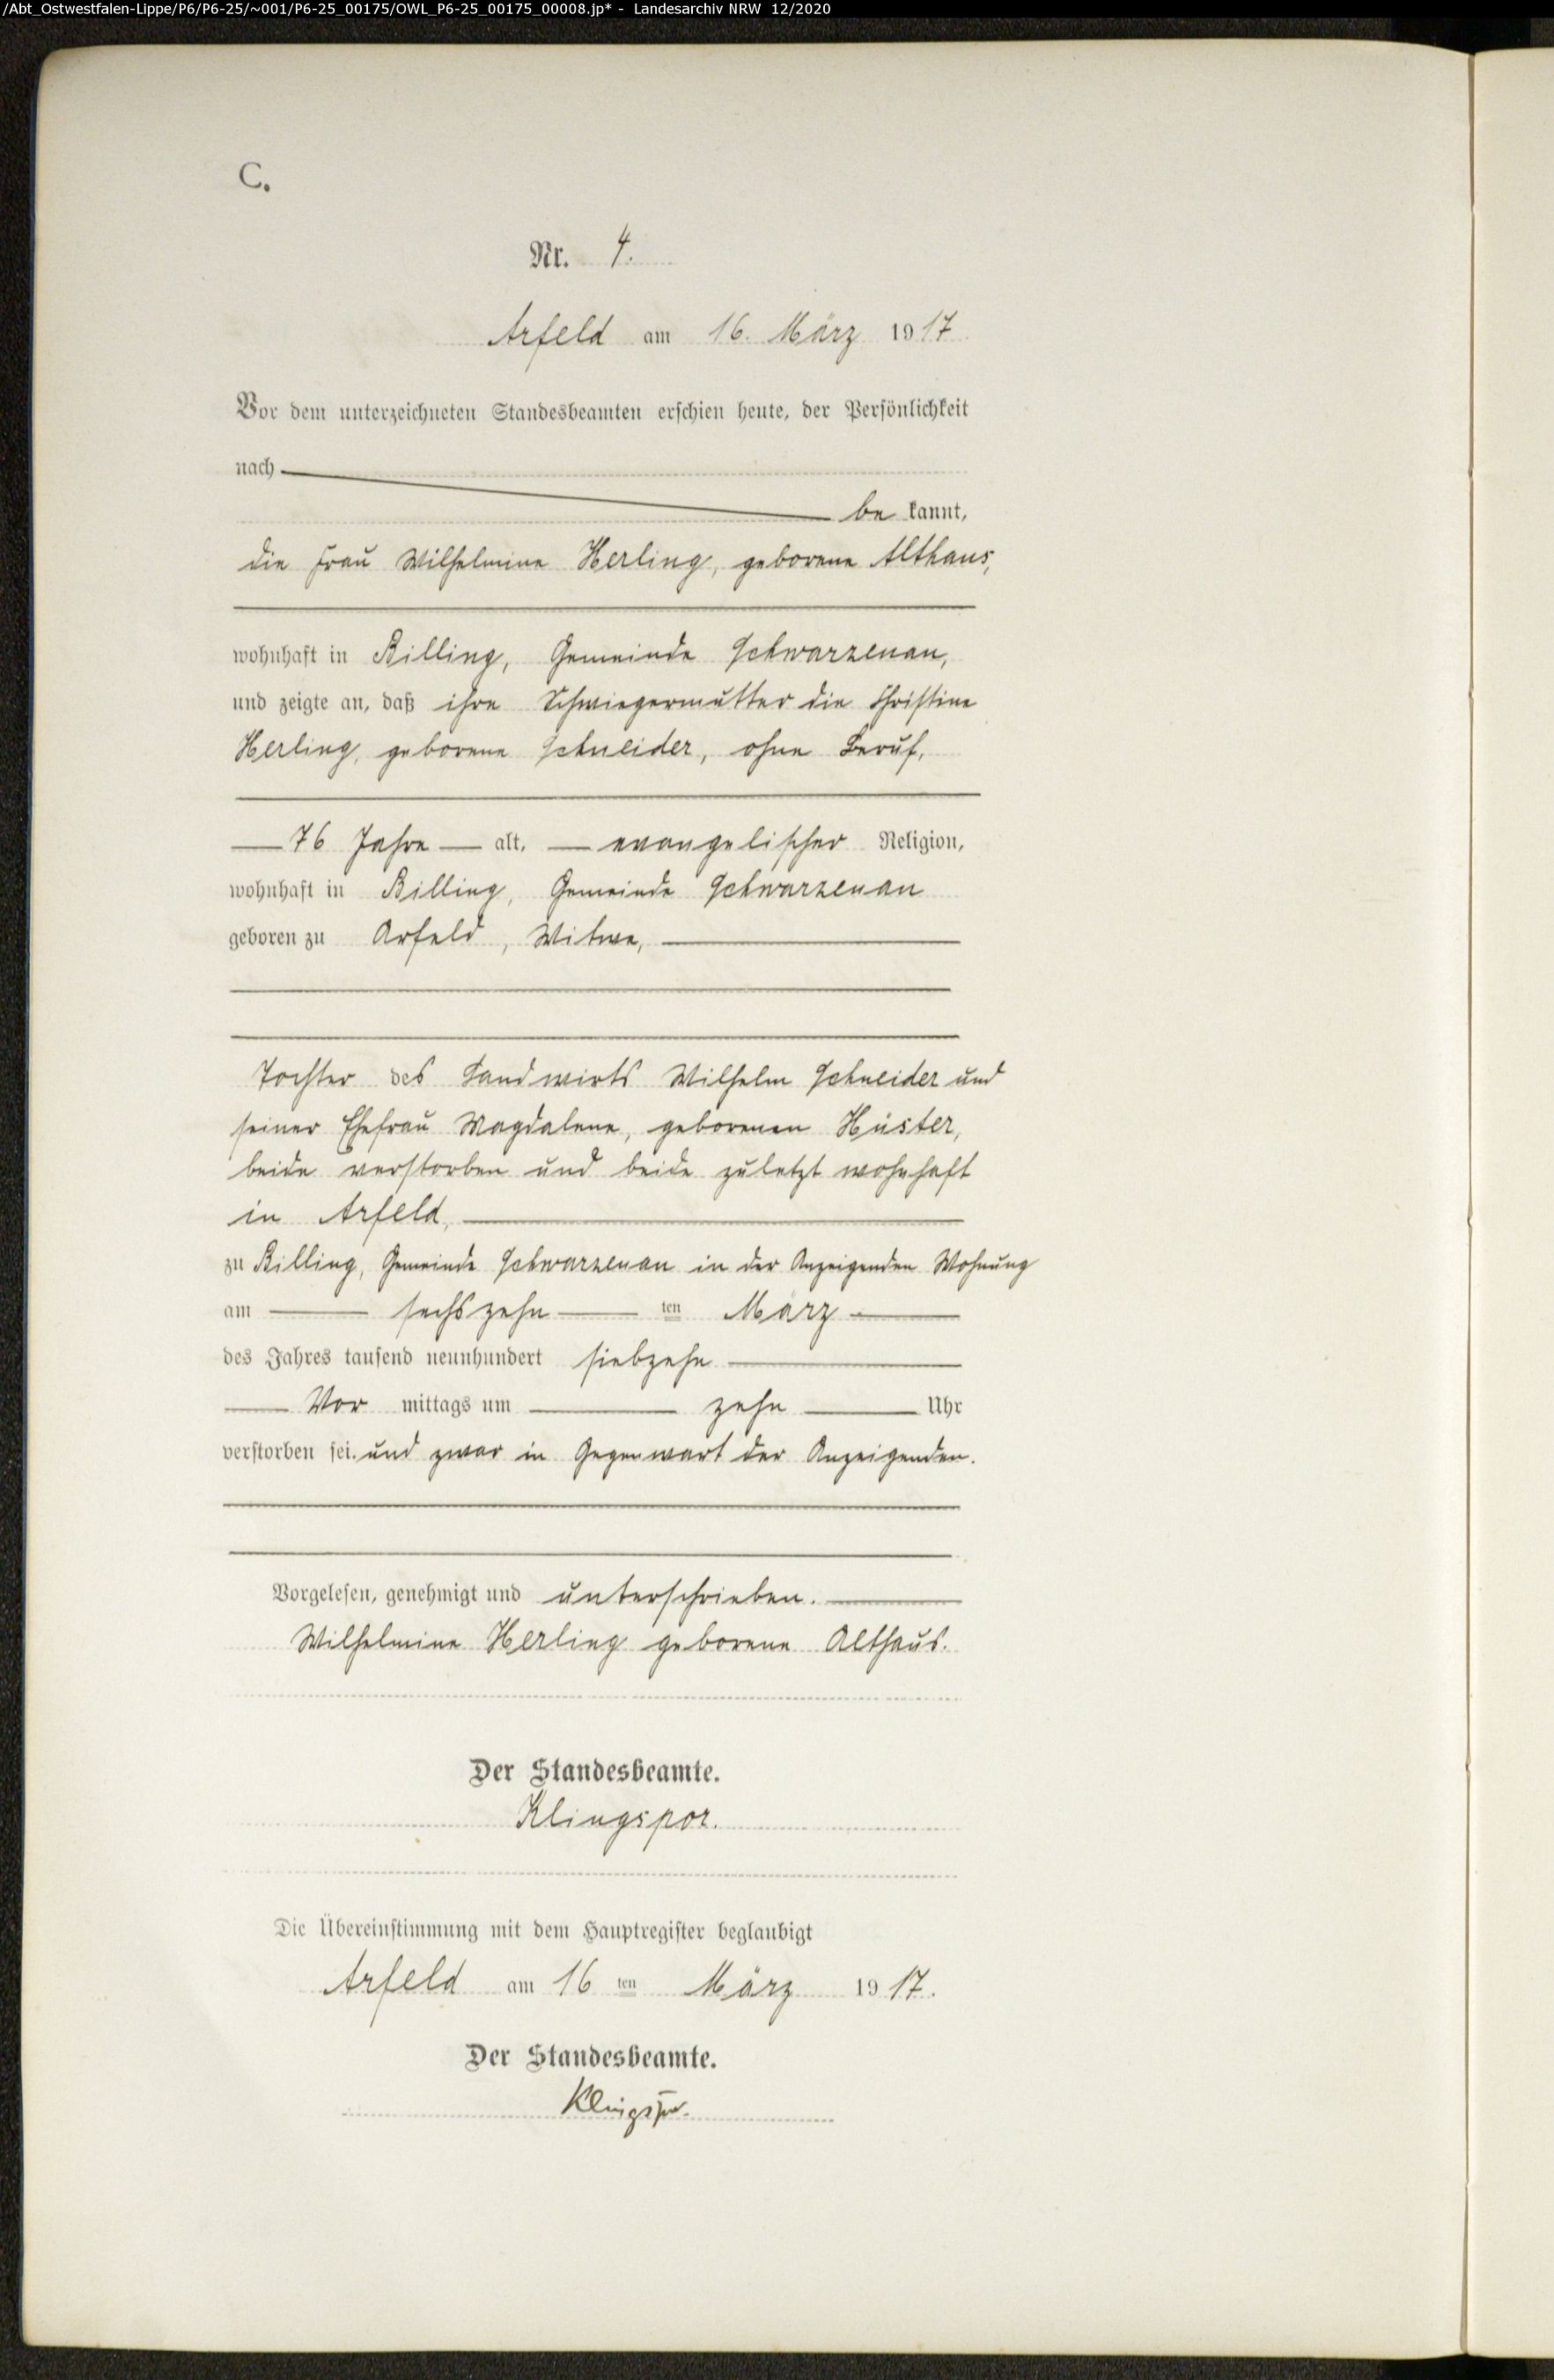 /Abt_Ostwestfalen-Lippe/P6/P6-25/~001/P6-25_00175/OWL_P6-25_00175_00008.jp* - Landesarchiv NRW 12/2020
C.
Nr. 4.
Arfeld am 16. März 1917
Vor dem unterzeichneten Standesbeamten erschien heute, der Persönlichkeit
nach
be kannt,
die Frau Wilhelmine Herling, geborene Althaus,
wohnhaft in Billing, Gemeinde Schwarzenau,
und zeigte an, daß ihre Schwiegermutter die Christine
Herling, geborene Schneider, ohne Beruf,
76 Jahre alt, evangelischer Religion,
wohnhaft in Billing, Gemeinde Schwarzenau
geboren zu Arfeld, Witwe,
Tochter des Landwirts Wilhelm Schneider und
seiner Ehefrau Magdalene, geborenen Hüster,
beide verstorben und beide zuletzt wohnhaft
in Arfeld,
zu Billing, Gemeinde Schwarzenau in der Anzeigenden Wohnung
am sechszehn ten März
des Jahres tausend neunhundert siebzehn
Vor mittags um zehn Uhr
verstorben sei. und zwar in Gegenwart der Anzeigenden.
Vorgelesen, genehmigt und unterschrieben.
Wilhelmine Herling geborene Althaus.
Der Standesbeamte.
Klingspor.
Die Übereinstimmung mit dem Hauptregister beglaubigt
Arfeld am 16 ten März 1917.
Der Standesbeamte.
Klingspor.